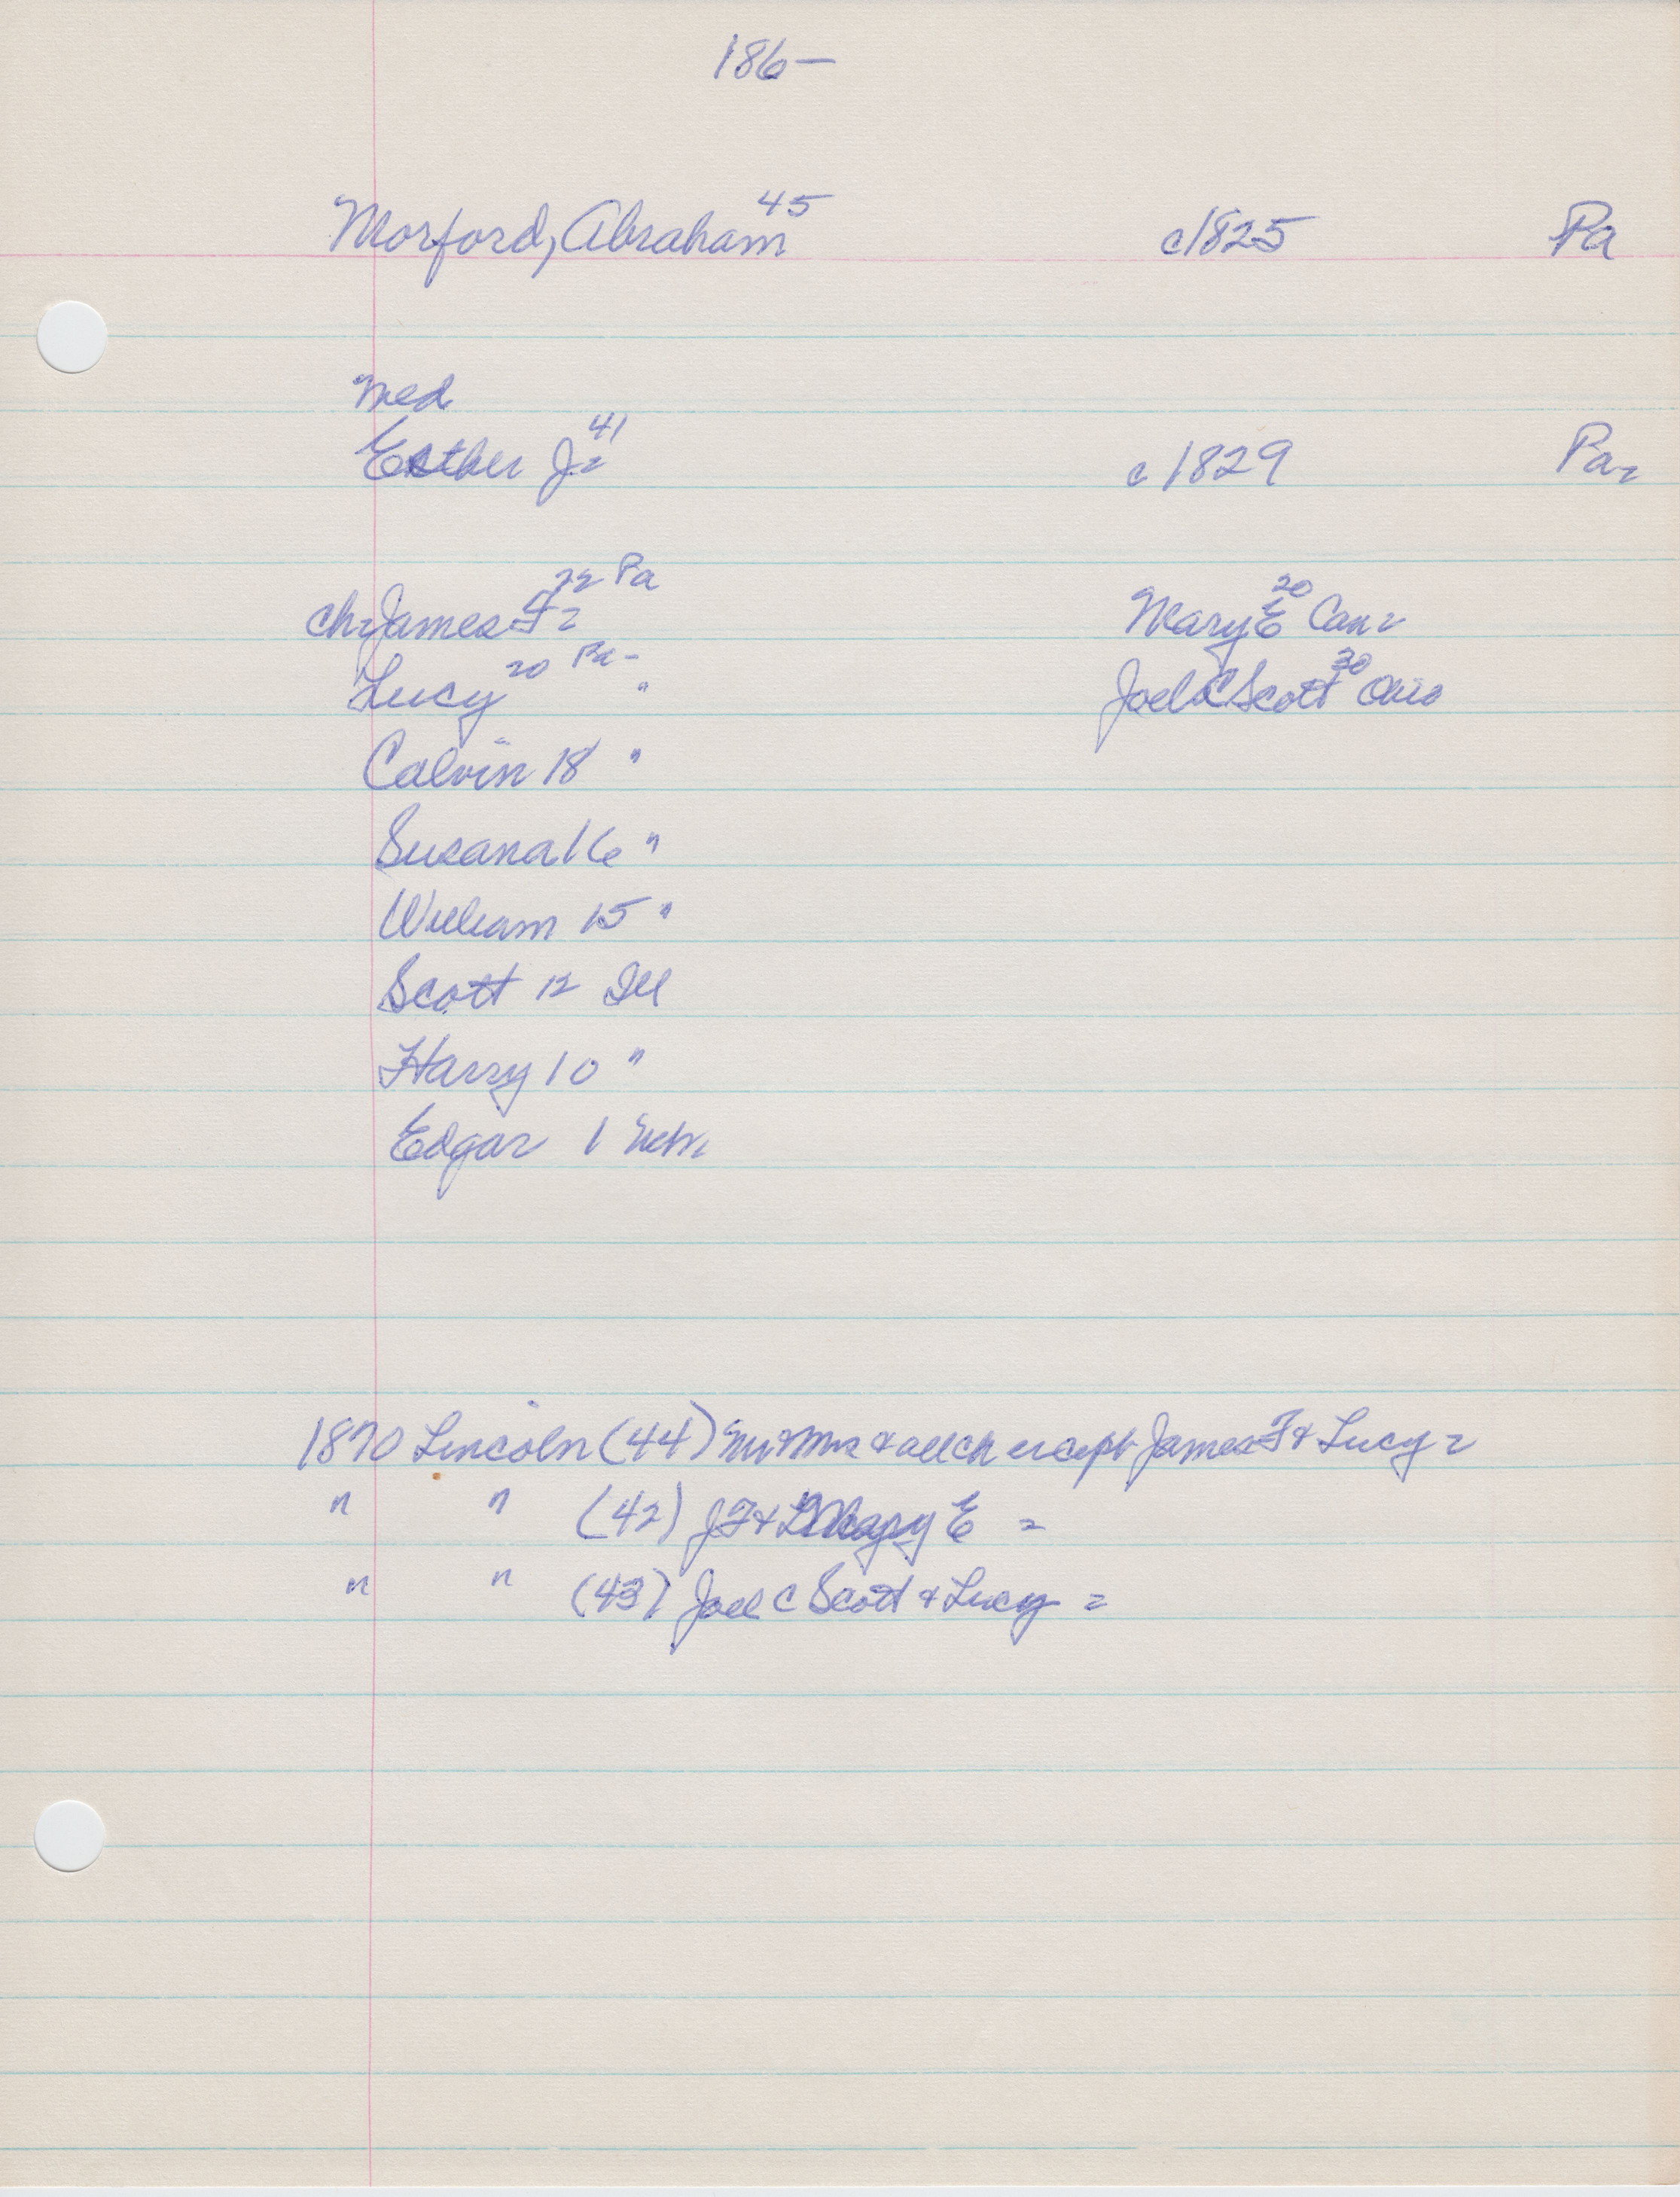 186-
Morford, Abraham 45 c1825 Pa
med
Esther J- 41 c1829 Pa-
ch- James F- 22 Pa Mary E 20 Can-
Lucy 20 Pa- " Joel C Scott 30 Ohio
Calvin 18 "
Susana 16 "
William 15 "
Scott 12 Ill
Harry 10 "
Edgar 1 Neb-
1870 Lincoln (44) Mr & Mrs & all ch except James F & Lucy-
" " (42) JF & Mary E -
" " (43) Joel C Scott & Lucy -